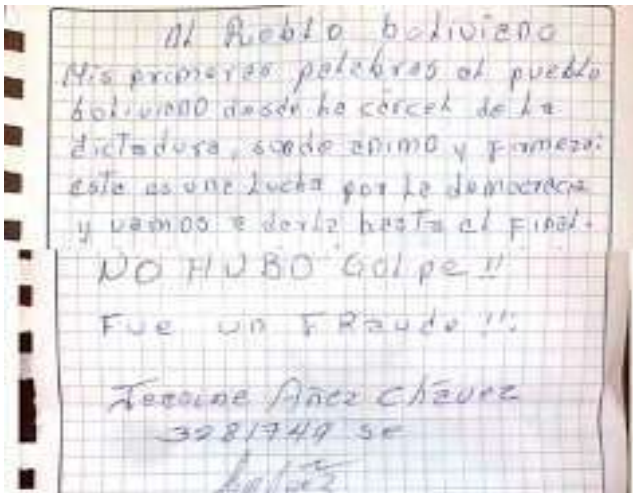 Al Pueblo boliviano
Mis primeras palabras al pueblo
boliviano desde la cárcel de la
dictadura, son de ánimo y firmeza:
esta es una lucha por la democracia
y vamos a darla hasta el final.
NO HUBO Golpe!!
Fue un FRaude!!
Jeanine Añez Chávez
3281749 SC